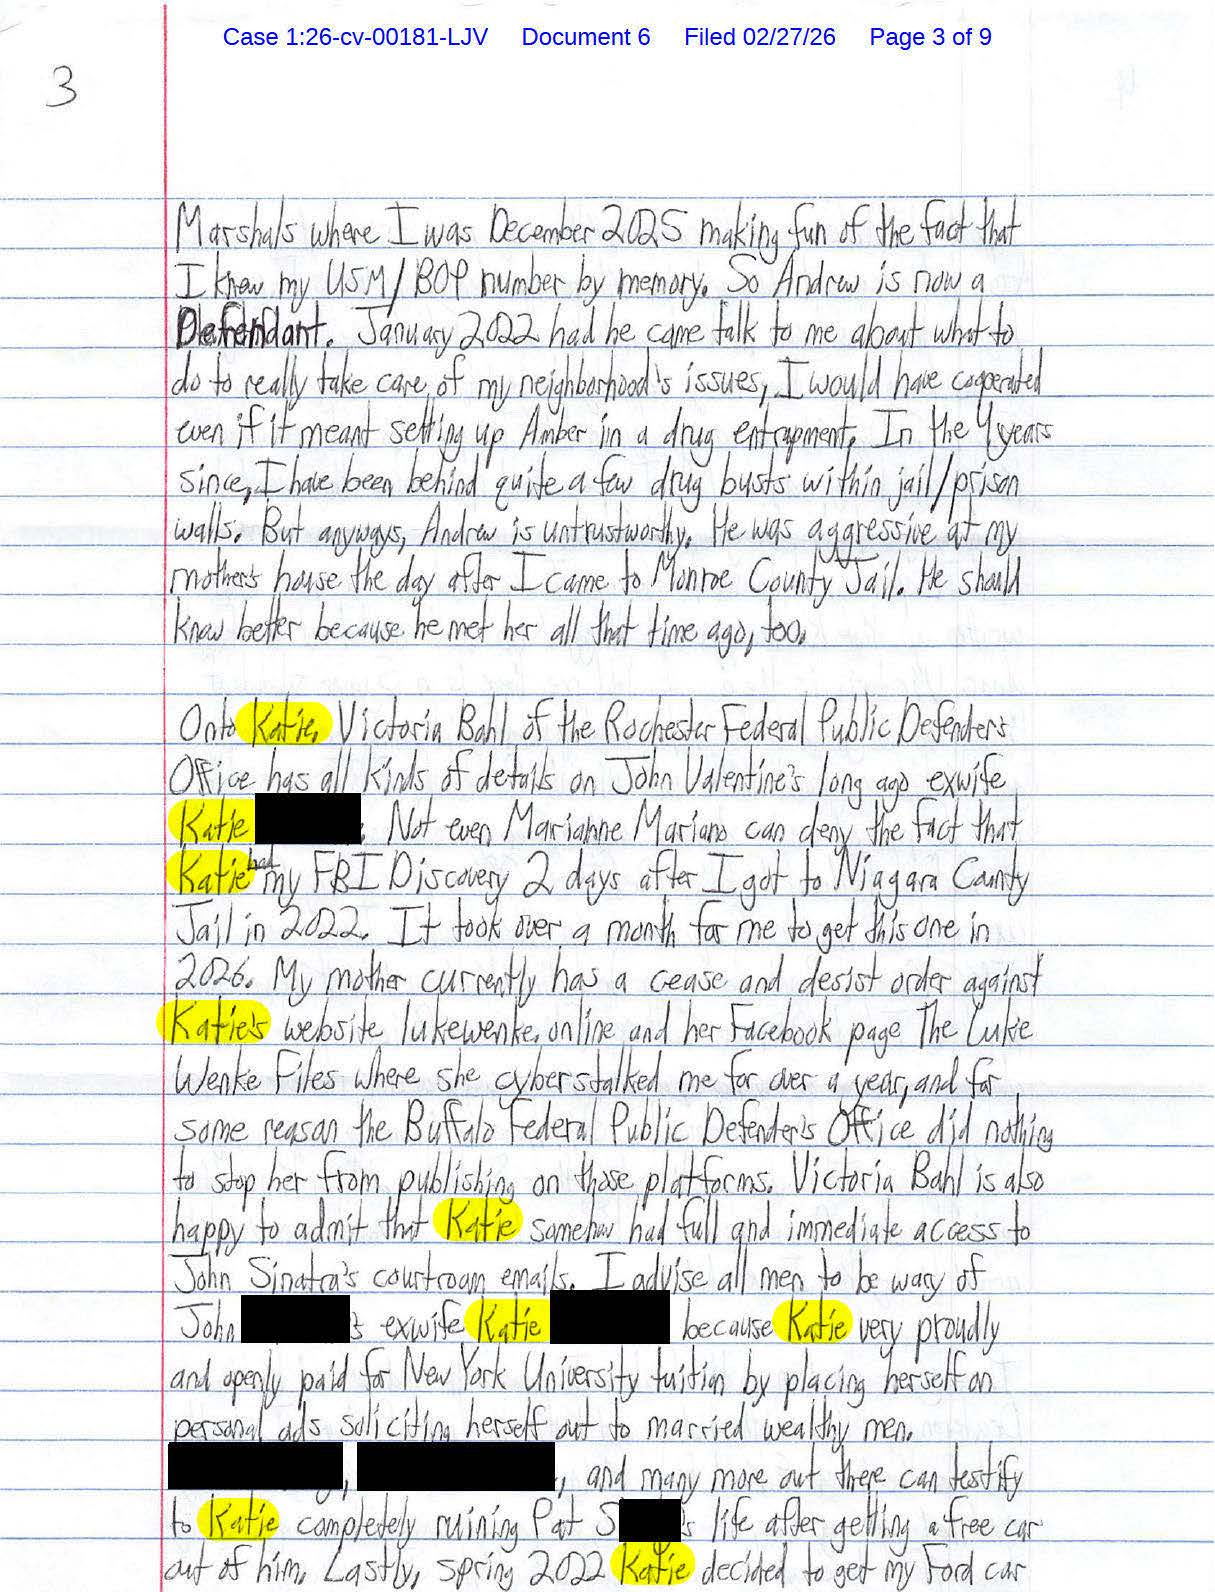 Case 1:26-cv-00181-LJV Document 6 Filed 02/27/26 Page 3 of 9
3
Marshals where I was December 2025 making fun of the fact that
I know my USM/BOP number by memory. So Andrew is now a
Defendant. January 2022 had he came talk to me about what to
do to really take care of my neighborhood's issues, I would have cooperated
even if it meant setting up Amber in a drug entrapment. In the 4 years
since, I have been behind quite a few drug busts within jail/prison
walls. But anyways, Andrew is untrustworthy. He was aggressive at my
mother's house the day after I came to Monroe County Jail. He should
know better because he met her all that time ago, too.
Onto Katie. Victoria Bahl of the Rochester Federal Public Defender's
Office has all kinds of details on John Valentine's long ago exwife
Katie . Not even Marianne Mariano can deny the fact that
Katie had my FBI Discovery 2 days after I got to Niagara County
Jail in 2022. It took over a month for me to get this one in
2026. My mother currently has a cease and desist order against
Katie's website lukewenke.online and her Facebook page The Luke
Wenke Files where she cyberstalked me for over a year, and for
some reason the Buffalo Federal Public Defender's Office did nothing
to stop her from publishing on those platforms. Victoria Bahl is also
happy to admit that Katie somehow had full and immediate access to
John Sinatra's courtroom emails. I advise all men to be wary of
John 's exwife Katie because Katie very proudly
and openly paid for New York University tuition by placing herself on
personal ads soliciting herself out to married wealthy men.
, , and many more out there can testify
to Katie completely ruining Pat S 's life after getting a free car
out of him. Lastly, spring 2022 Katie decided to get my Ford car